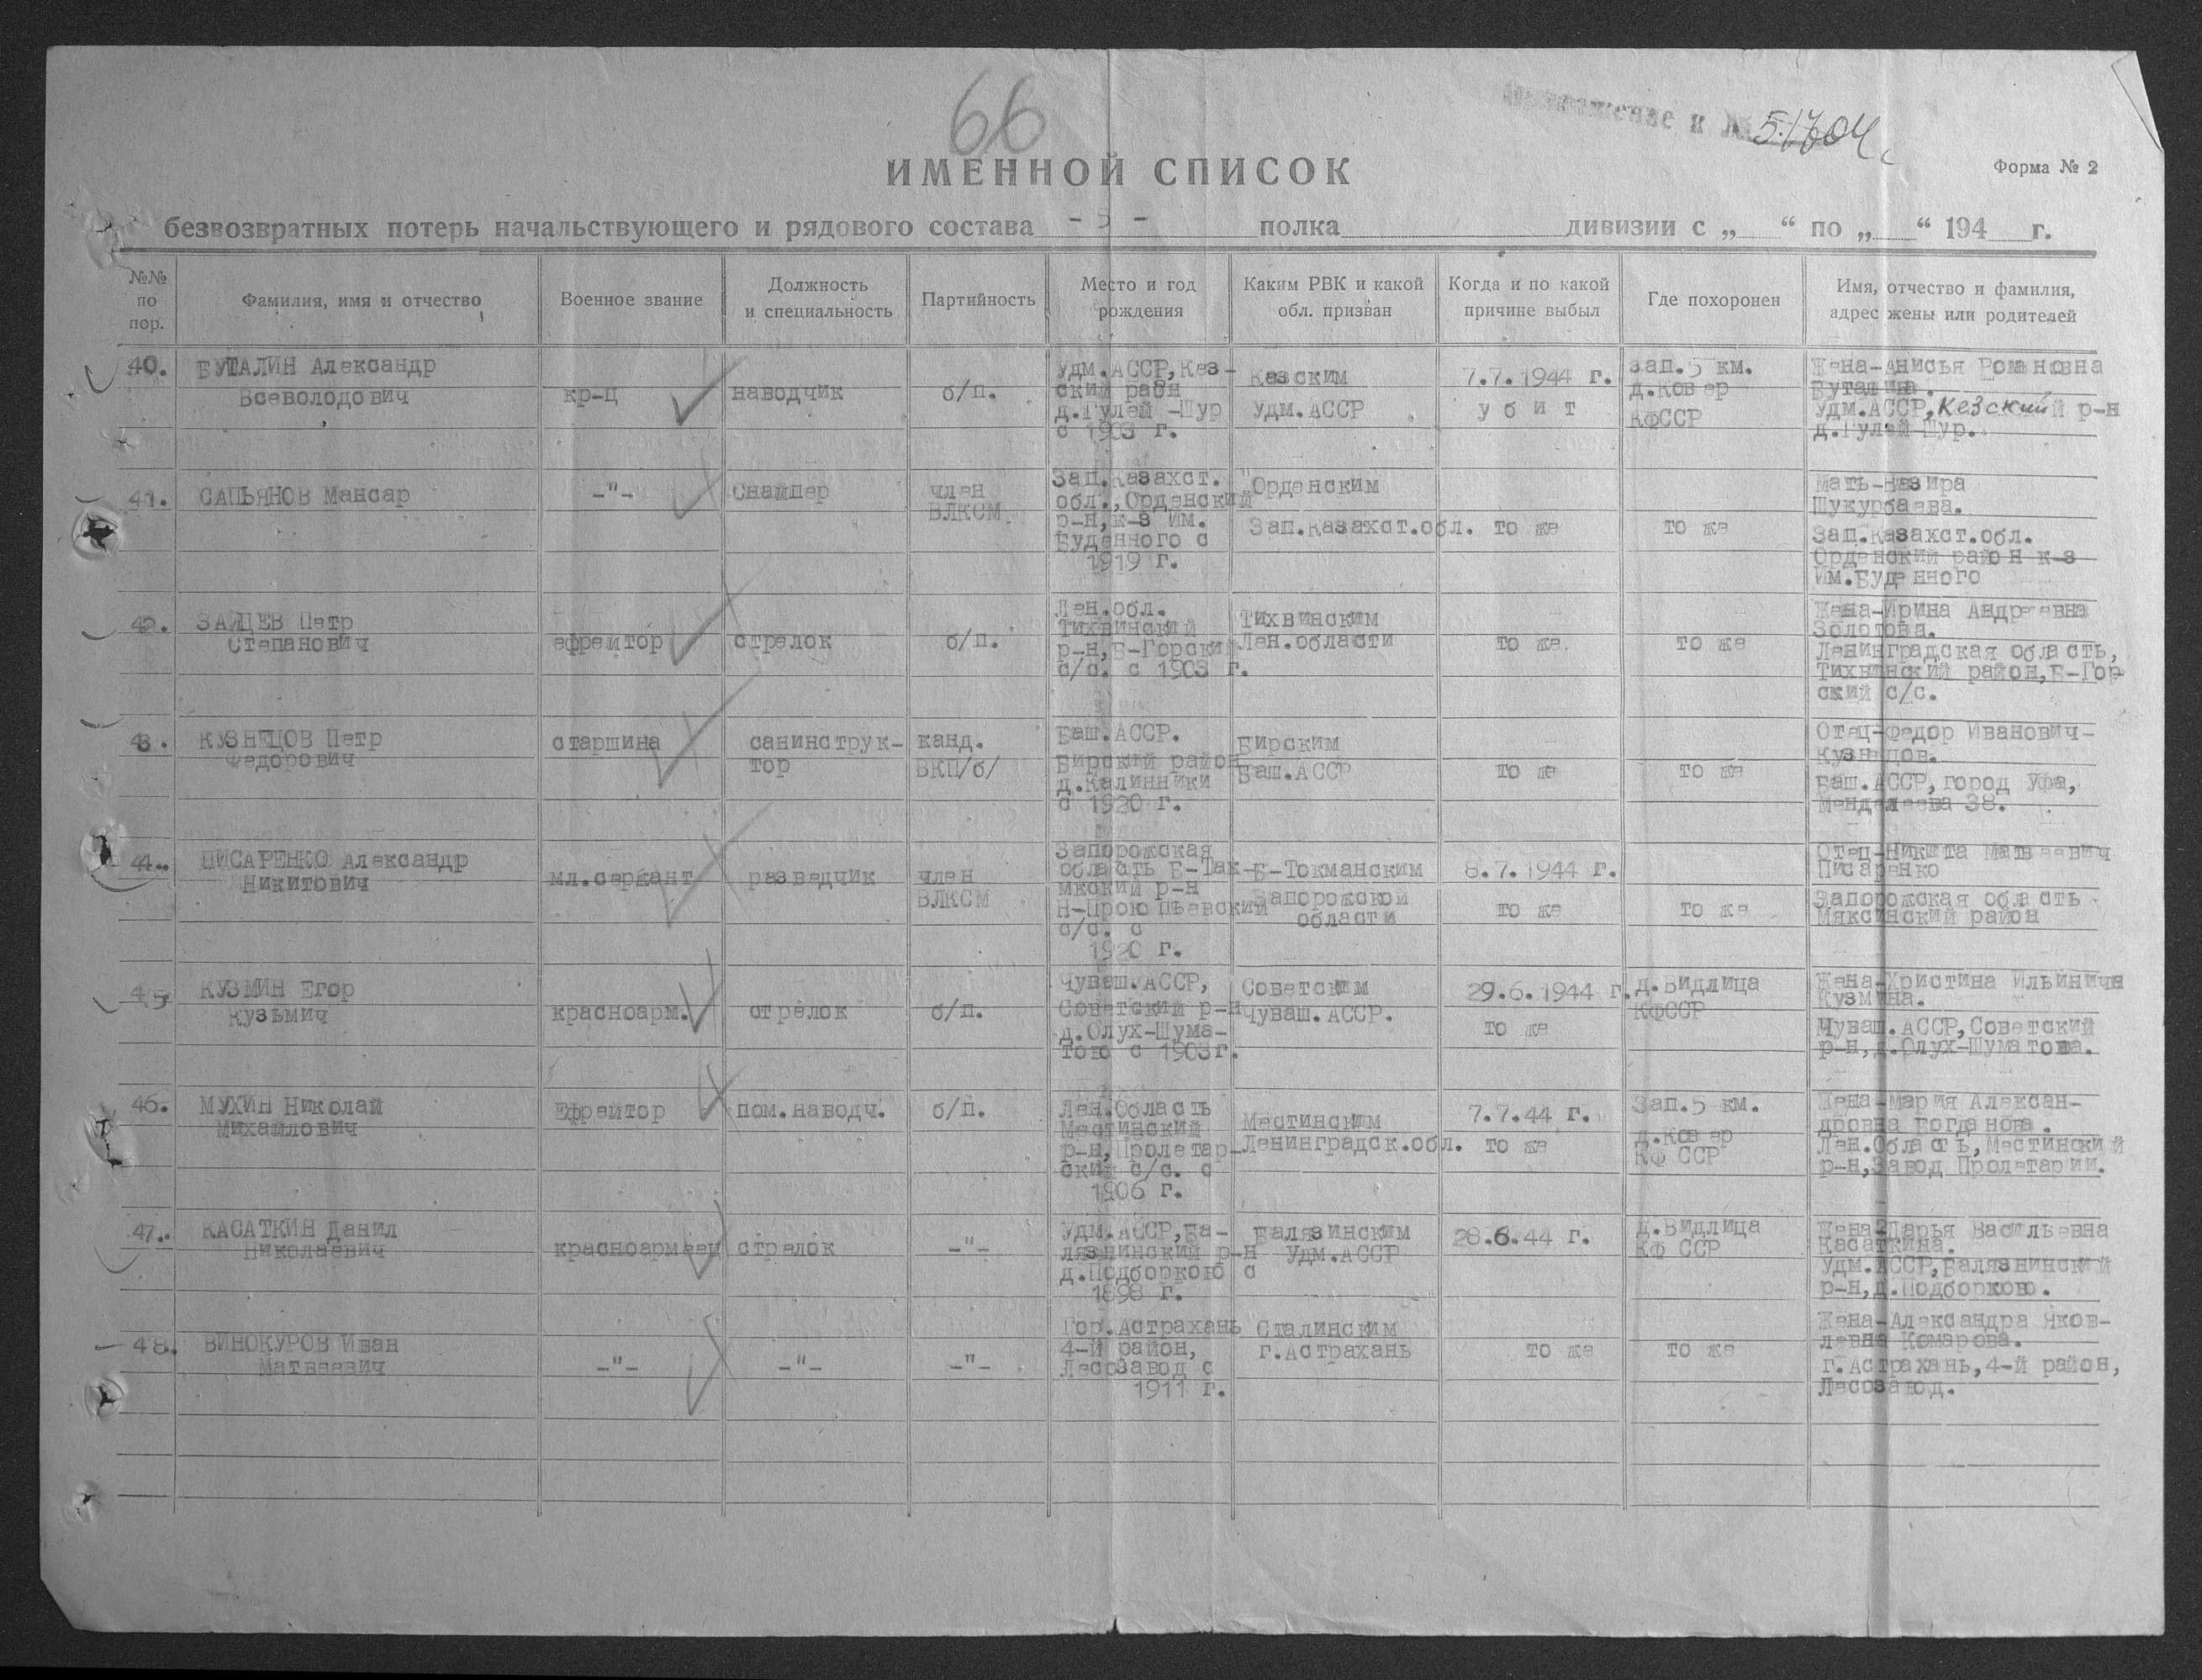 66
5.1704с
ИМЕННОЙ СПИСОК
Форма № 2
безвозвратных потерь начальствующего и рядового состава - 5 - полка дивизии с „ “ по „ “ 194 г.
№№ по пор.
Фамилия, имя и отчество
Военное звание
Должность и специальность
Партийность
Место и год рождения
Каким РВК и какой обл. призван
Когда и по какой причине выбыл
Где похоронен
Имя, отчество и фамилия, адрес жены или родителей
40.
БУТАЛИН Александр
Всеволодович
кр-ц
наводчик
б/п.
Удм.АССР,Кез-
ский район
д.Гулей-Шур
с 1903 г.
Кезским
Удм.АССР
7.7.1944 г.
у б и т
зап.5 км.
д.Ковер
КФССР
Жена-Анисья Романовна
Буталина.
Удм.АССР,Кезский р-н
д.Гулей-Шур.
41.
САПЬЯНОВ Мансар
-"-
Снайпер
член
ВЛКСМ
Зап.Казахст.
обл.,Орденский
р-н,к-з Им.
Буденного с
1919 г.
Орденским
Зап.Казахст.обл.
то же
то же
Мать-Назира
Шукурбаева.
Зап.Казахст.обл.
Орденский район к-з
Им.Буденного
42.
ЗАЙЦЕВ Петр
Степанович
ефрейтор
стрелок
б/п.
Лен.обл.
Тихвинский
р-н,Б-Горский
с/с. с 1903 г.
Тихвинским
Лен.области
то же.
то же
Жена-Ирина Андреевна
Золотова.
Ленинградская область,
Тихвинский район,Б-Гор
ский с/с.
43.
КУЗНЕЦОВ Петр
Федорович
старшина
санинструк-
тор
канд.
ВКП/б/
Баш.АССР.
Бирский район
д.Калинники
с 1920 г.
Бирским
Баш.АССР
то же
то же
Отец-Федор Иванович-
Кузнецов.
Баш.АССР,город Уфа,
Менделеева 38.
44.
ПИСАРЕНКО Александр
Никитович
мл.сержант
разведчик
член
ВЛКСМ
Запорожская
область Б-Ток-
мкский р-н
Н-Прокопьевский
с/с. с
1920 г.
Б-Токманским
Запорожской
области
8.7.1944 г.
то же
то же
Отец-Никита Матвеевич
Писаренко
Запорожская область
Мяксинский район
45
КУЗМИН Егор
Кузьмич
красноарм.
стрелок
б/п.
Чуваш.АССР,
Советский р-н
д.Олух-Шума-
тово с 1903г.
Советским
Чуваш.АССР.
29.6.1944 г.
то же
д.Видлица
КФССР
Жена-Христина Ильинична
Кузмина.
Чуваш.АССР,Советский
р-н,д.Олух-Шуматова.
46.
МУХИН Николай
Михайлович
Ефрейтор
пом.наводч.
б/п.
Лен.Область
Мстинский
р-н,Пролетар-
ский с/с. с
1906 г.
Мстинским
Ленинградск.обл.
7.7.44 г.
то же
Зап.5 км.
д.Ковер
КФ ССР
Жена-Мария Алексан-
дровна Богданова.
Лен.Область,Мстинский
р-н,Завод Пролетарии.
47.
КАСАТКИН Данил
Николаевич
красноармеец
стрелок
-"-
Удм.АССР,Ба-
лязнинский р-н
д.Подборково с
1898 г.
Балязинским
Удм.АССР
28.6.44 г.
д.Видлица
КФ ССР
Жена-Дарья Васильевна
Касаткина.
Удм.АССР,Балязнинский
р-н,д.Подборково.
48.
ВИНОКУРОВ Иван
Матвеевич
-"-
-"-
-"-
Гор.Астрахань
4-й район,
Лесозавод с
1911 г.
Сталинским
г.Астрахань
то же
то же
Жена-Александра Яков-
левна Комарова.
г.Астрахань,4-й район,
Лесозавод.